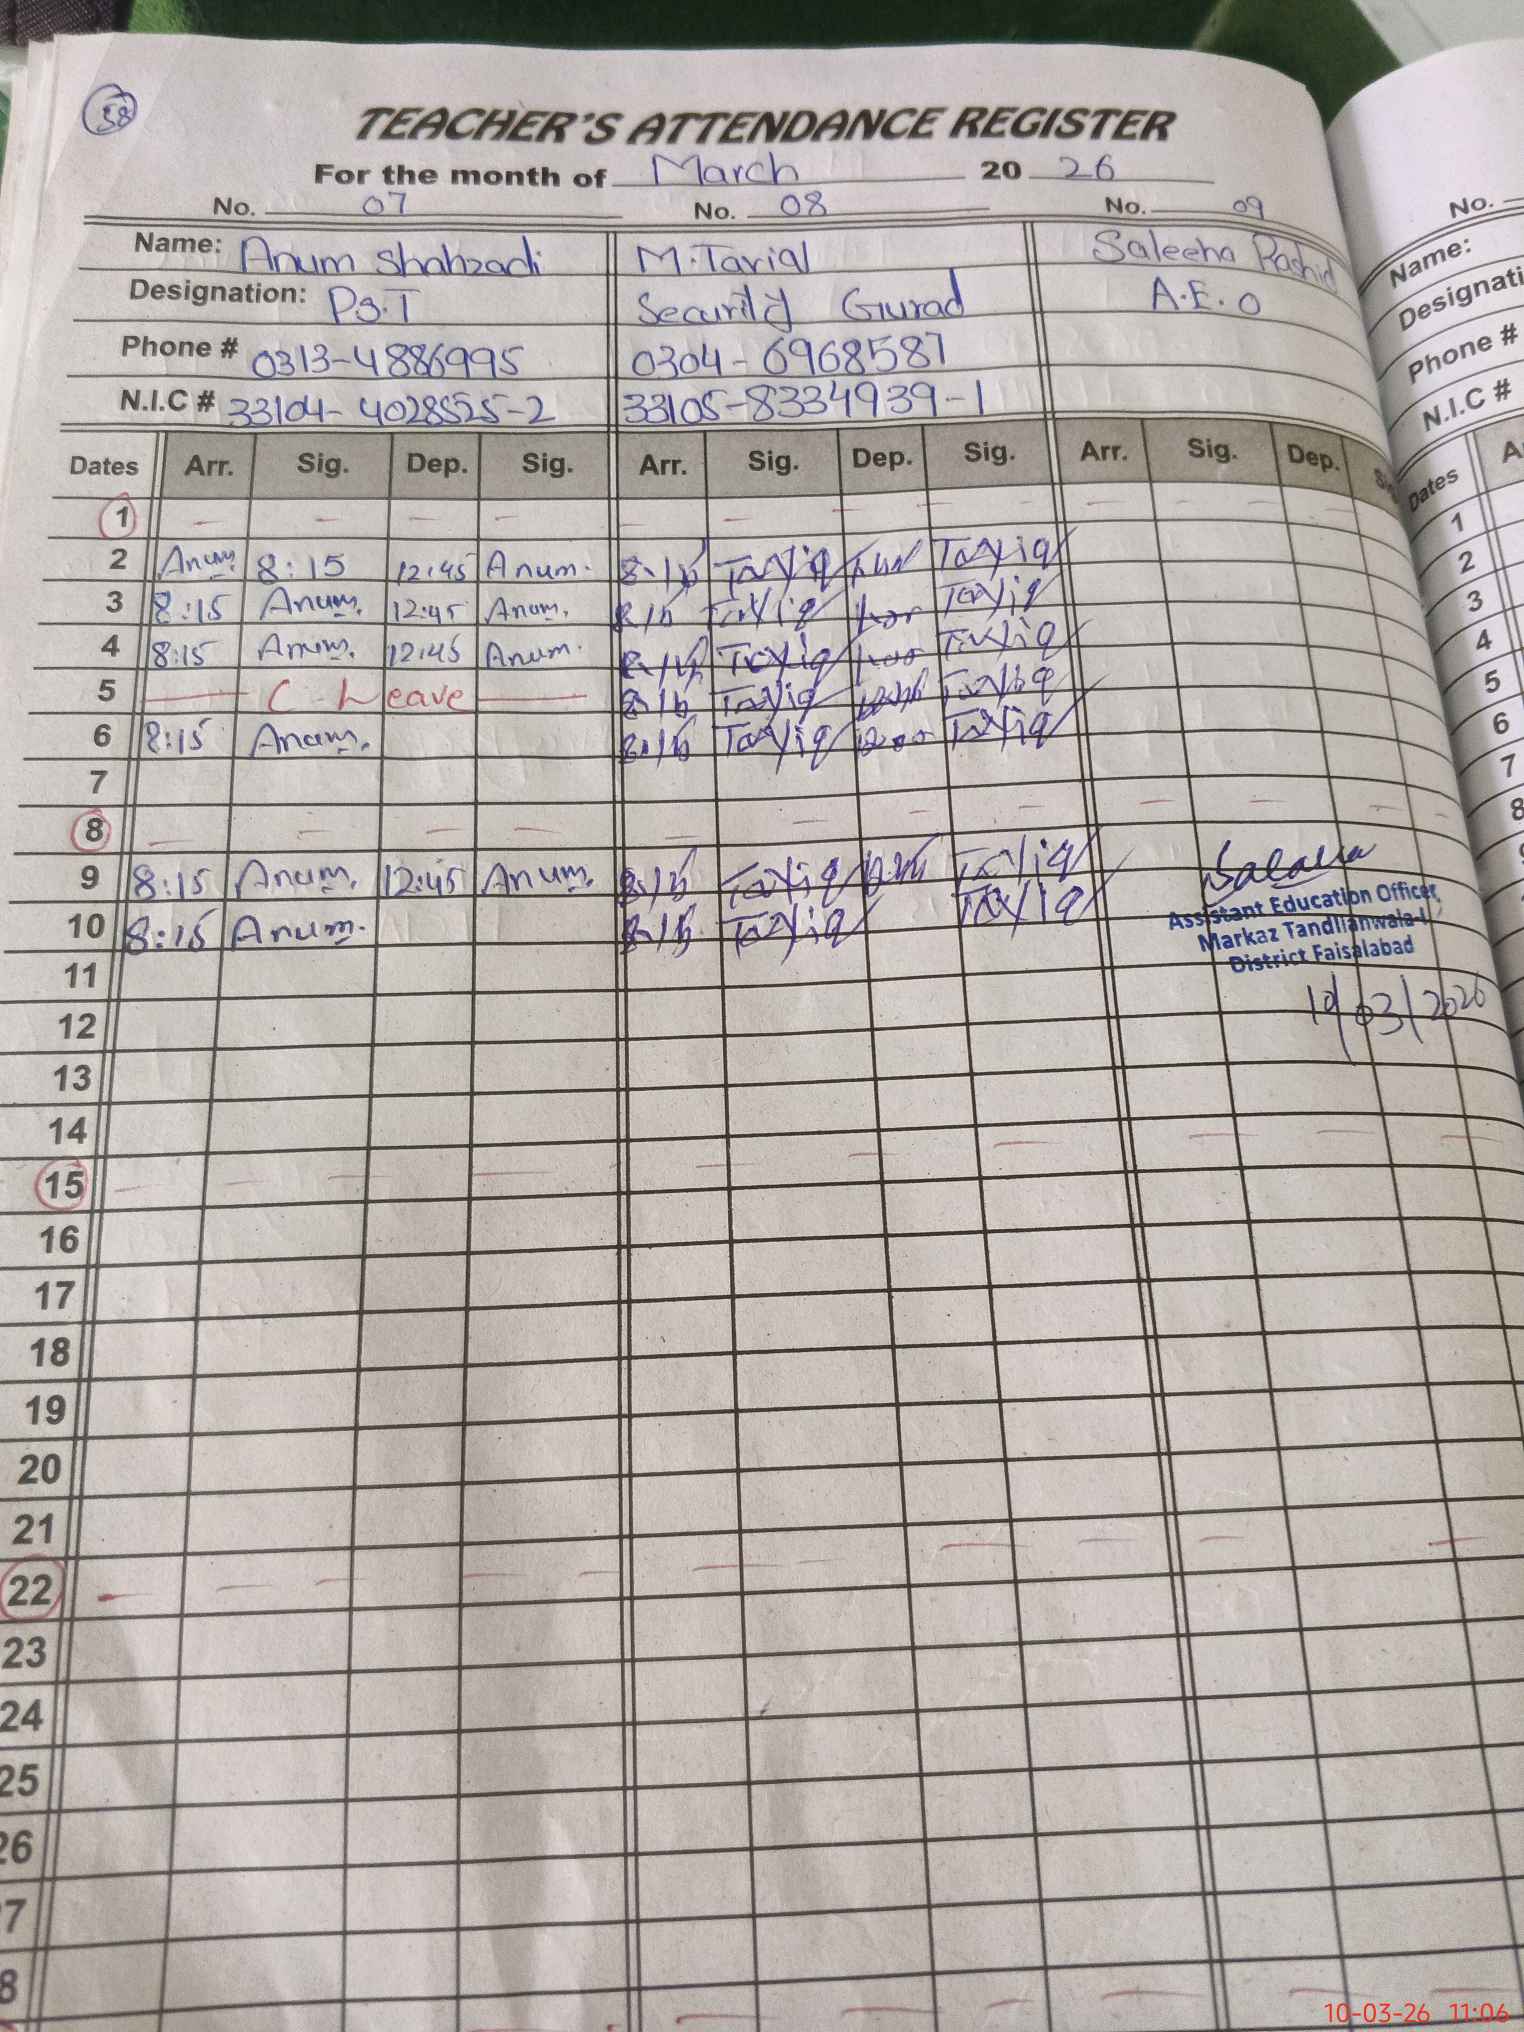 58
TEACHER'S ATTENDANCE REGISTER
For the month of March 20 26
No. 07 No. 08 No. 09 No.
Name: Anum Shahzadi M.Tariq Saleeha Rashid Name:
Designation: Ps.T Security Gurad A.E.O Designati
Phone # 0313-4886995 0304-6968587 Phone #
N.I.C # 33104-4028525-2 33105-8334939-1 N.I.C #
Dates Arr. Sig. Dep. Sig. Arr. Sig. Dep. Sig. Arr. Sig. Dep. Dates
1 1
2 Anum. 8:15 12:45 Anum. Tariq Tariq 2
3 8:15 Anum. 12:45 Anum. Tariq Tariq 3
4 8:15 Anum. 12:45 Anum. Tariq Tariq 4
5 C. Leave Tariq Tariq 5
6 8:15 Anum. Tariq Tariq 6
7 7
8 8
9 8:15 Anum. 12:45 Anum. Tariq Tariq
10 8:15 Anum. Tariq Tariq
Assistant Education Officer
Markaz Tandlianwala-I
District Faisalabad
10/03/2026
11
12
13
14
15
16
17
18
19
20
21
22
23
24
25
26
7
8
10-03-26 11:06